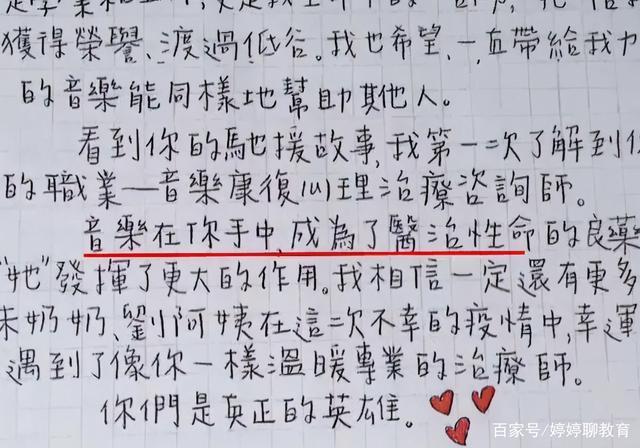 獲得榮譽、渡過低谷。我也希望,一直帶給我力
的音樂能同樣地幫助其他人。
看到你的馳援故事,我第一次了解到
的職業—音樂康復心理治療咨詢師。
音樂在你手中,成為了醫治性命的良藥
"她"發揮了更大的作用。我相信一定還有更多
奶奶、劉阿姨在這次不幸的疫情中,幸運
遇到了像你一樣溫暖專業的治療師。
你們是真正的英雄。
百家号/婷婷聊教育